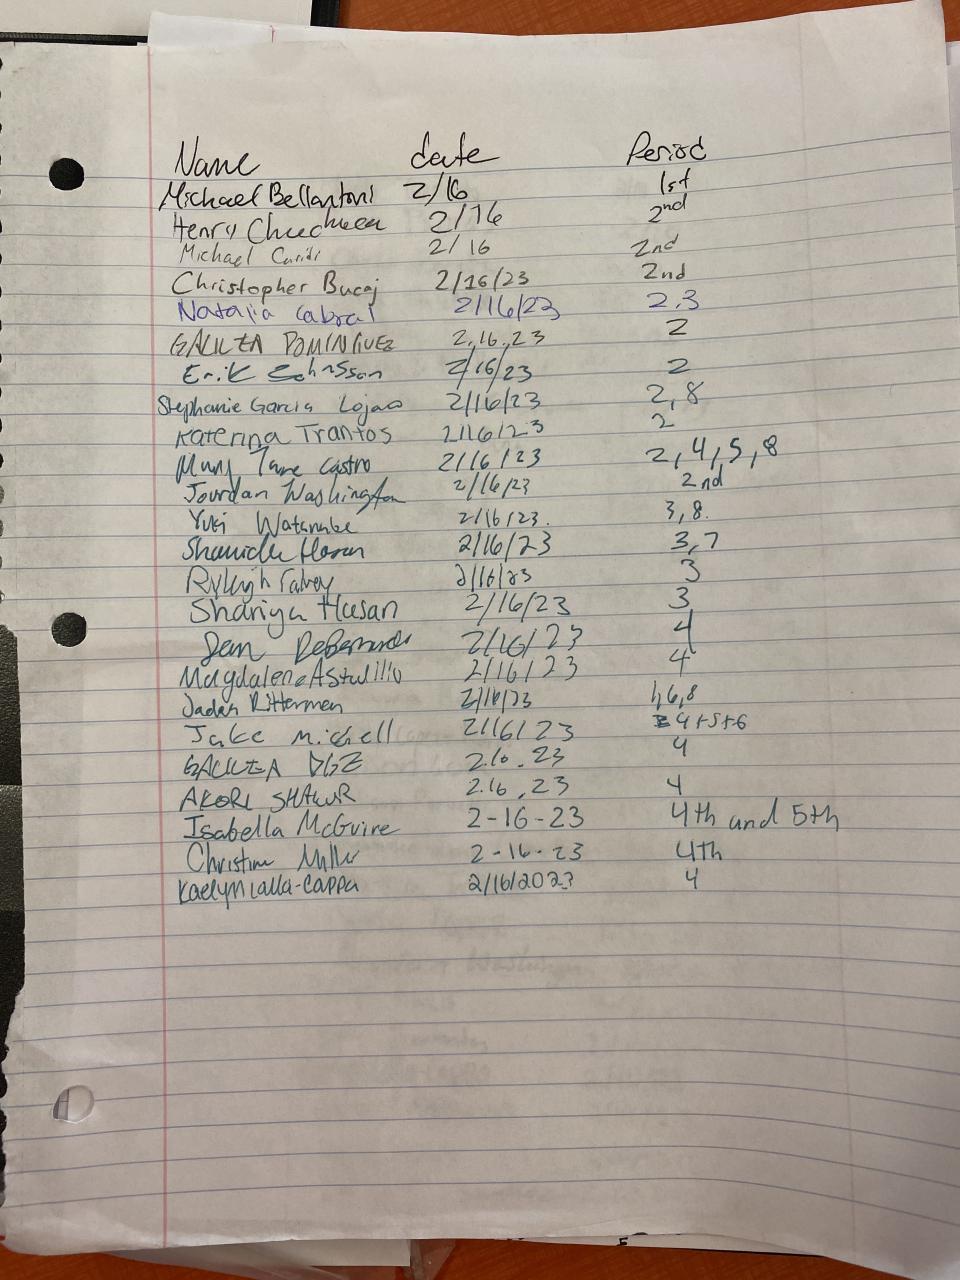 Name date Period
Michael Bellantoni 2/16 1st
Henry 2/16 2nd
Michael 2/16 2nd
Christopher Bucaj 2/16/23 2nd
Natalia Cabral 2/16/23 2,3
GALILEA DOMINGUEZ 2.16.23 2
Erik Johnsson 2/16/23 2
Stephanie Garcia Lojano 2/16/23 2,8
Katerina Trantos 2/16/23 2
Mary Jane Castro 2/16/23 2,4,5,8
Jourdan Washington 2/16/23 2nd
Yuki Watanabe 2/16/23. 3,8.
Hasan 2/16/23 3,7
Ryleigh 2/16/23 3
Shariya Hasan 2/16/23 3
2/16/23 4
Magdalena Astudillo 2/16/23 4
Jaden Ritterman 2/16/23 1,6,8
Jake Michell 2/16/23 4+5+6
GALILEA DGZ 2.16.23 4
AKORI SHAKUR 2.16.23 4
Isabella McGuire 2-16-23 4th and 5th
Christina Miller 2-16-23 4th
Kaelyn Lalla-Cappa 2/16/2023 4